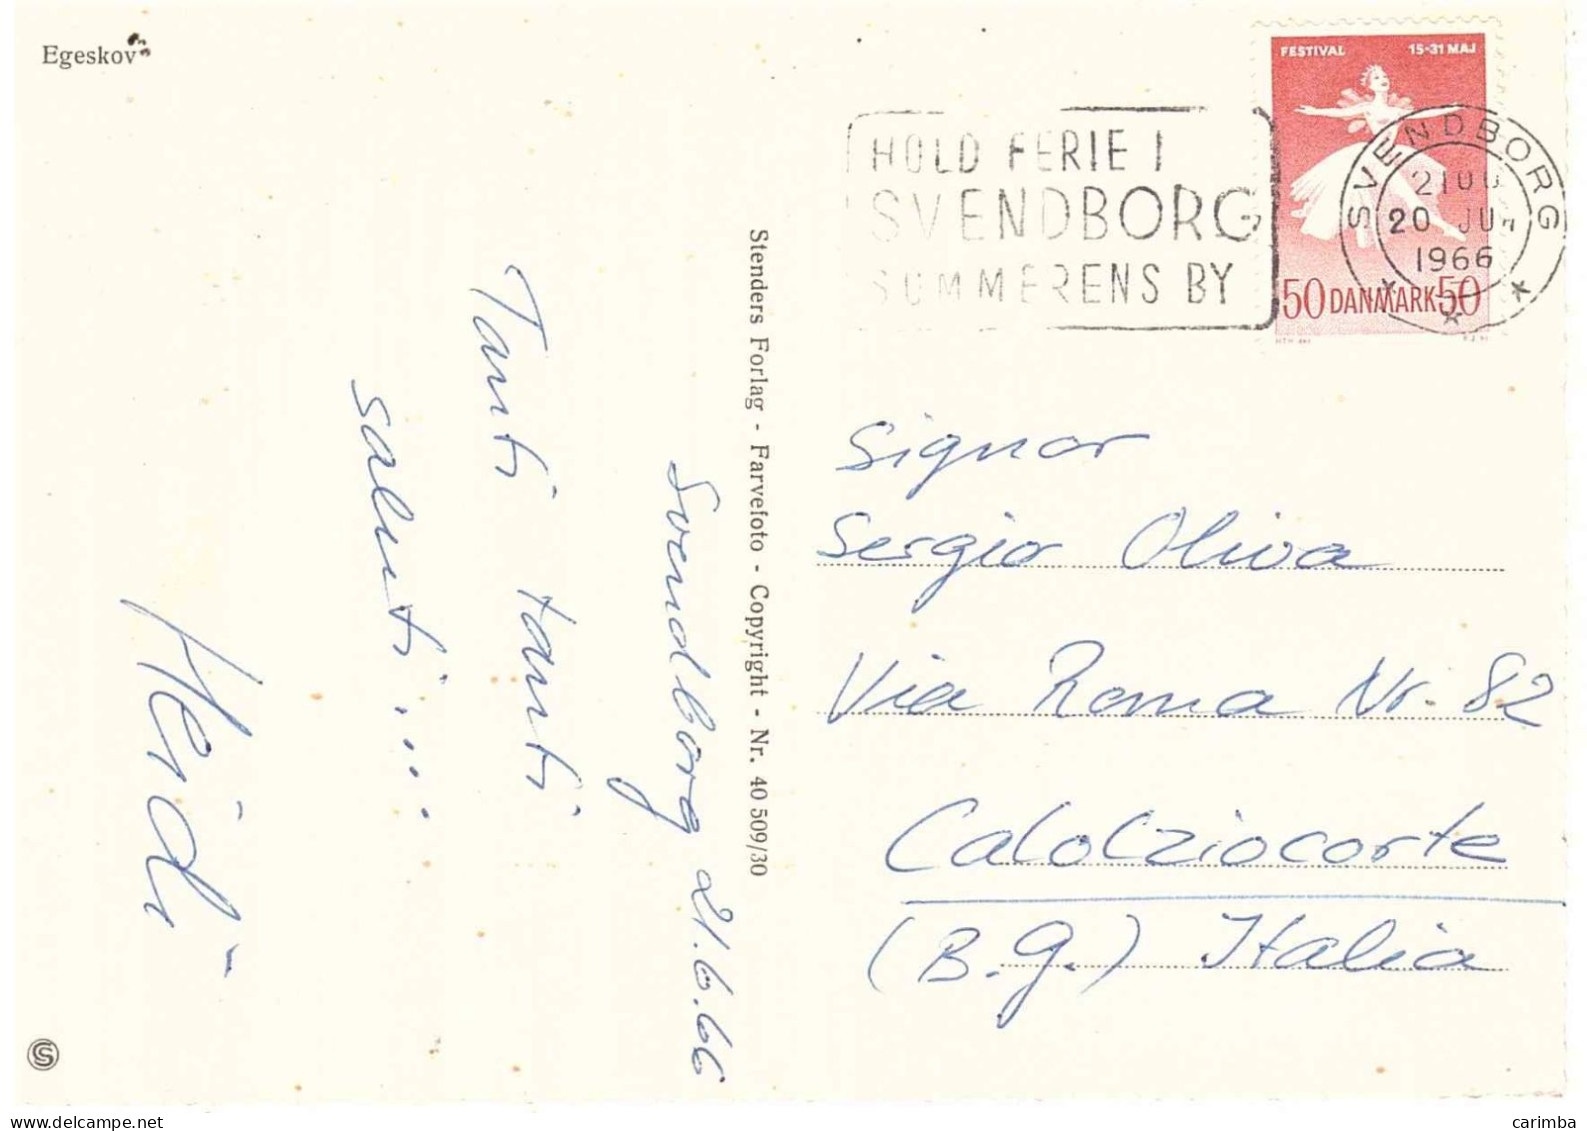 Egeskov
HOLD FERIE I
SVENDBORG
SUMMERENS BY
FESTIVAL 15-31 MAJ
50 DANMARK 50
SVENDBORG
20 JUN
1966
Stenders Forlag - Farvefoto - Copyright - Nr. 40 509/30
Svendborg 21.6.66
Tanti tanti
saluti ....
Heidi
Signor
Sergio Oliva
Via Roma Nr. 82
Calolziocorte
(B.G.) Italia
carimba